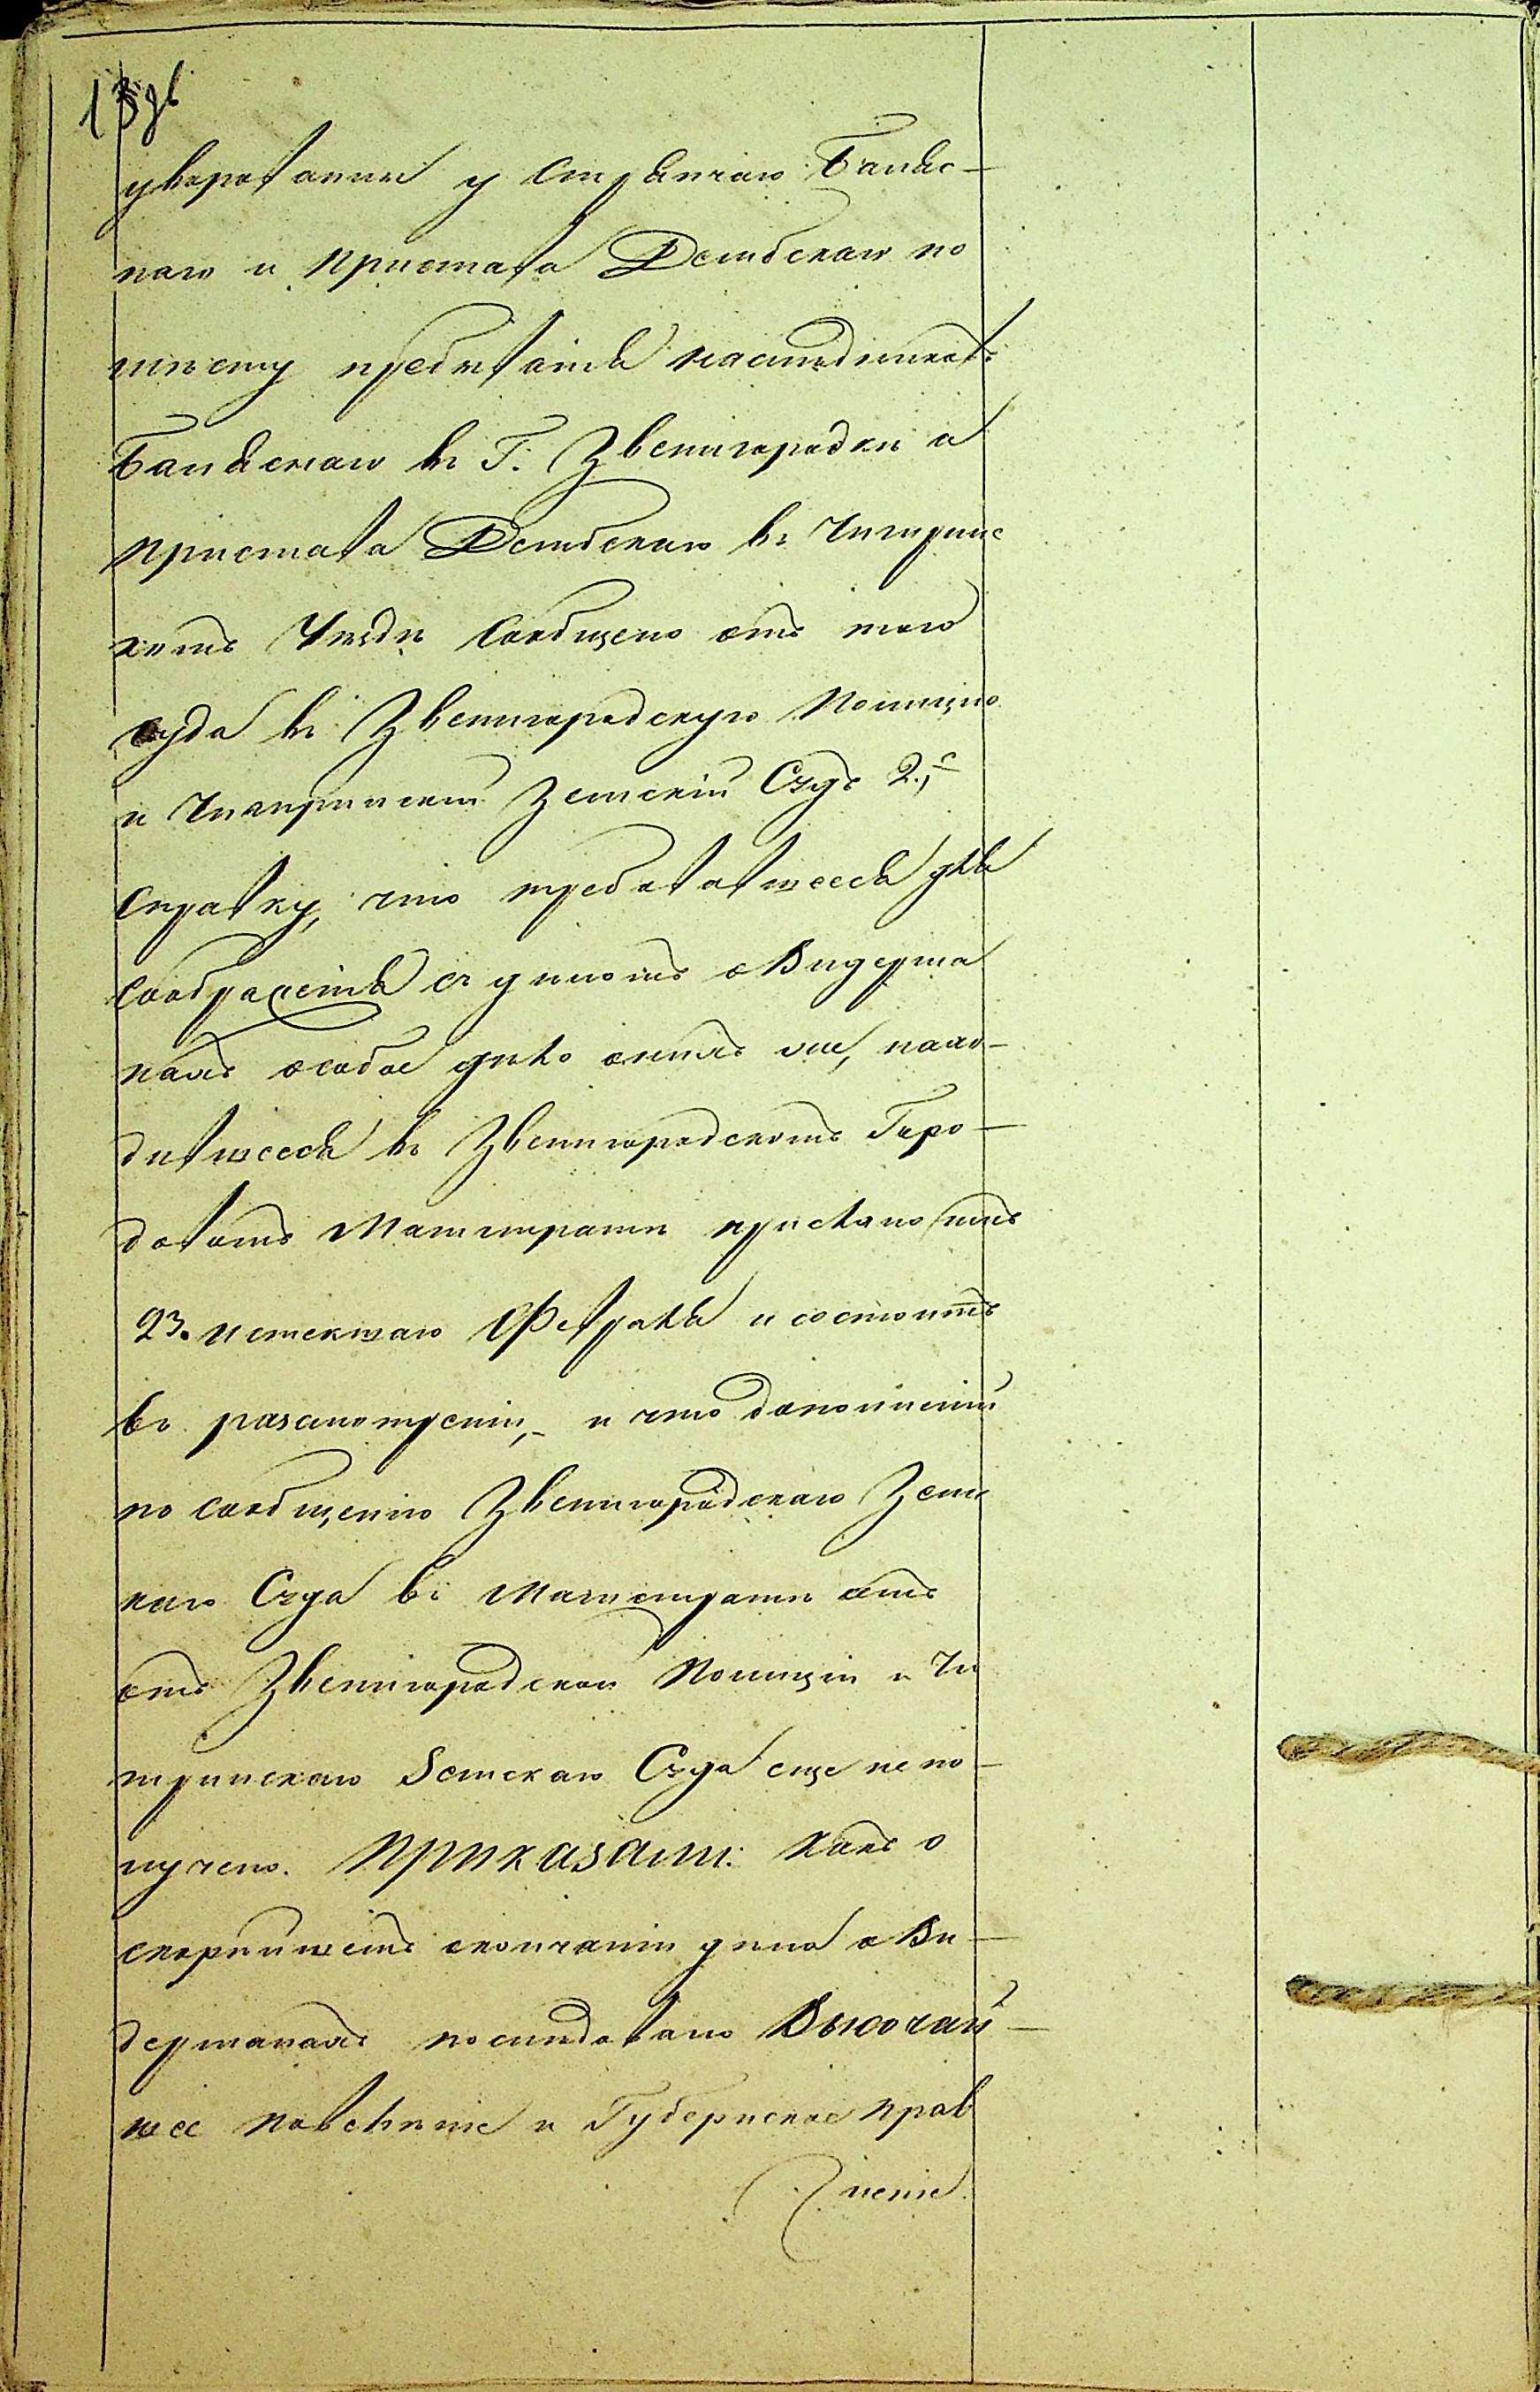 уворовании у Стряпчаго Банис-
каго и пристава Дембскаго по
шнему предметамъ наслѣдниковъ
Банискаго въ Г. Звенигородки а
пристава Дембскаго въ Чигирин
комъ Уѣзди Сообщено отъ того
суда въ Звенигородскую Полицію
и Чигиринскій Земскій Судъ 2.,
справку, что требовавшееся для
соображенія съ дѣломъ о Видерта
нахъ особое дѣло о нихъ же, нахо-
дившееся въ Звенигородскомъ Горо-
довомъ Магистрати прислано имъ
23. истекшаго Февраля и состоитъ
въ разсмотреніи, и что дополненій
по сообщенію Звенигородскаго Земс
каго Суда въ Магистрати отъ
отъ Звенигородской Полиціи и Чи
гринскаго Земскаго Суда еще не по-
лучено. Приказали: Какъ о
скорѣйшемъ окончаніи дѣла о Ви-
дертанахъ послѣдовало Высочай-
шее повелѣніе и Губернское прав
леніе